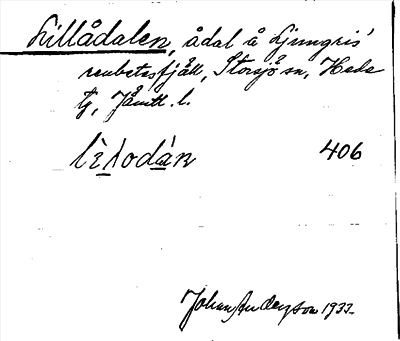 Lillådalen, ådal å Ljungris'
renbetesfjäll, Storsjö sn, Hede
tg, Jämtl. l.
lìlodán 406
Johan Anderson 1933